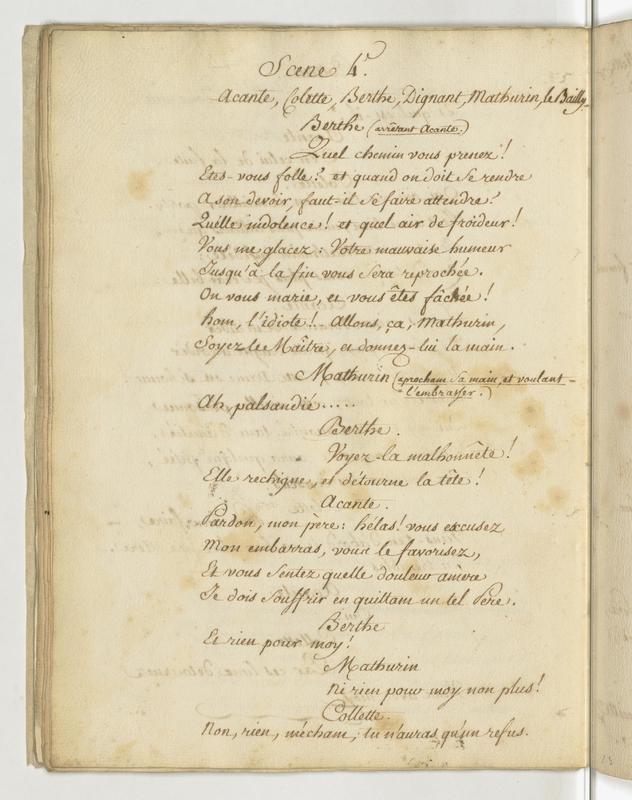 Scene 4e.
Acante, Colette, Berthe, Dignant, Mathurin, le Bailly.
Berthe (arrêtant Acante.)
Quel chemin vous prenez!
Etes-vous folle? et quand on doit se rendre
A son devoir, faut-il se faire attendre?
Quelle indolence! et quel air de froideur!
Vous me glacez: Votre mauvaise humeur
Jusqu'à la fin vous sera reprochée.
On vous marie, et vous êtes fâchée!
hom, l'idiote! Allons, ça, Mathurin,
Soyez le Maître, et donnez-lui la main.
Mathurin (aprochant sa main, et voulant
l'embrasser.)
Ah palsandié.....
Berthe.
Voyez-la malhonnête!
Elle rechigne, et détourne la tête!
Acante.
Pardon, mon père: hélas! vous excusez
Mon embarras, vous le favorisez,
Et vous sentez quelle douleur amère
Je dois souffrir en quittant un tel Père.
Berthe
Et rien pour moy!
Mathurin
ni rien pour moy non plus!
Collette.
Non, rien, méchant, tu n'auras qu'un refus.